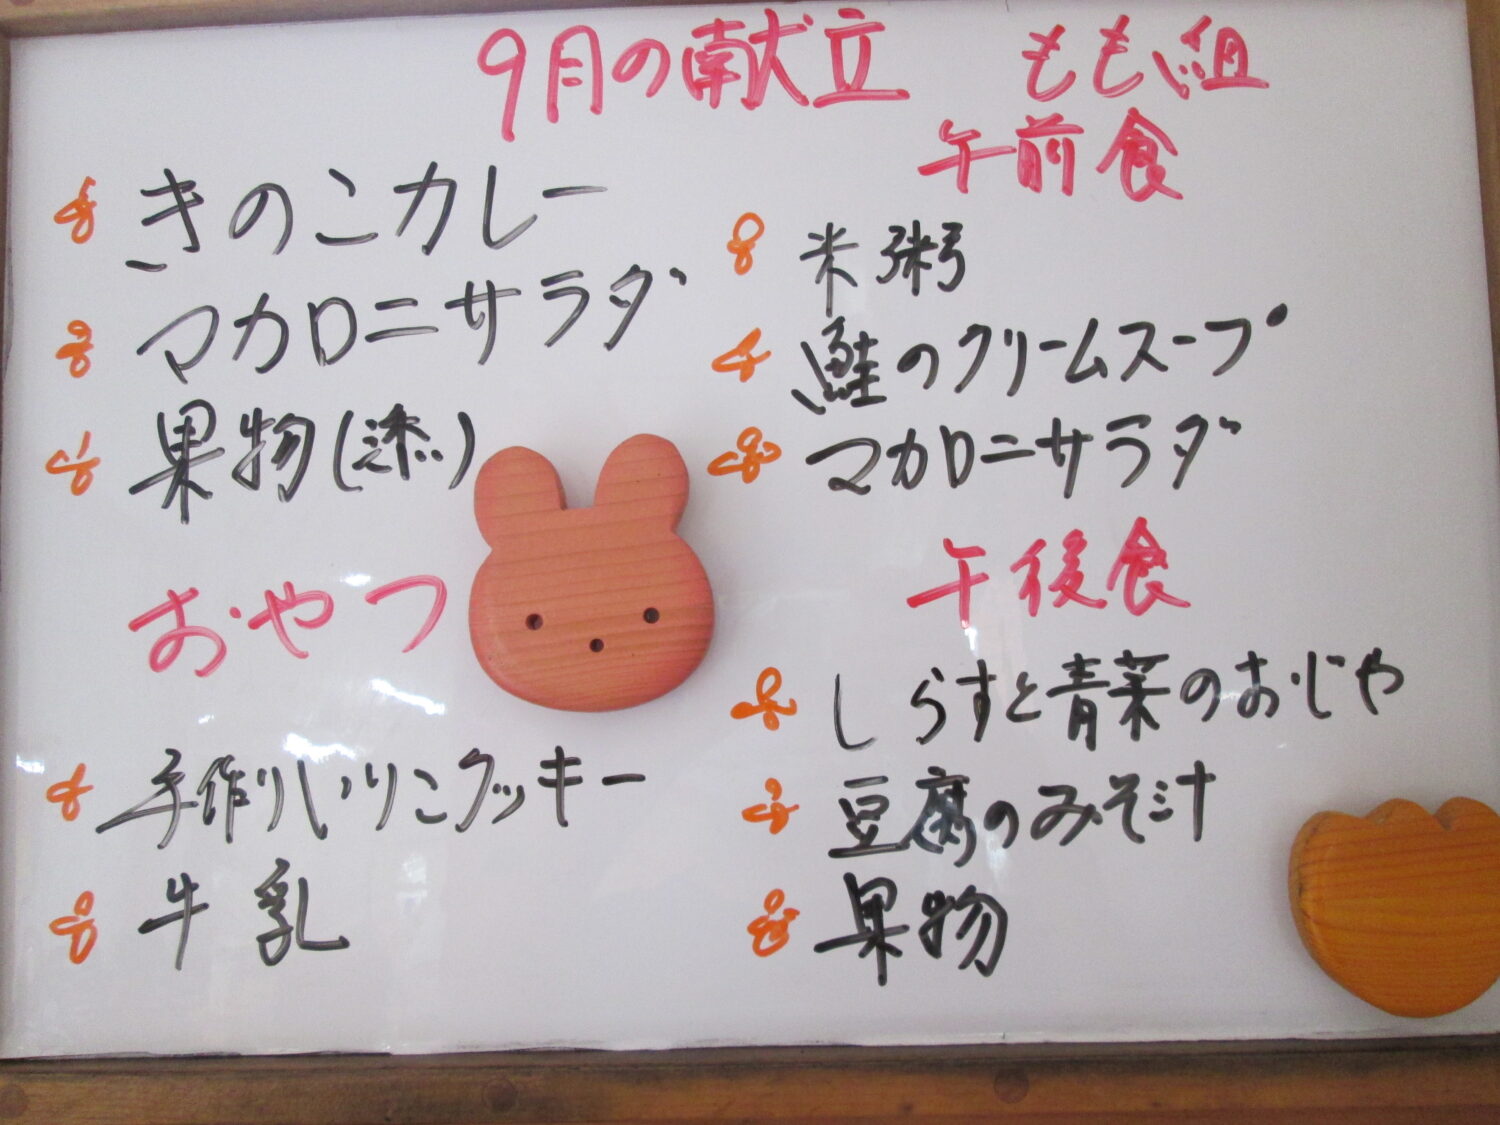 9月の献立
きのこカレー
マカロニサラダ
果物(漆)
おやつ
手作りいりこクッキー
牛乳
もも組
午前食
米粥
鮭のクリームスープ
マカロニサラダ
午後食
しらすと青菜のおじや
豆腐のみそ汁
果物